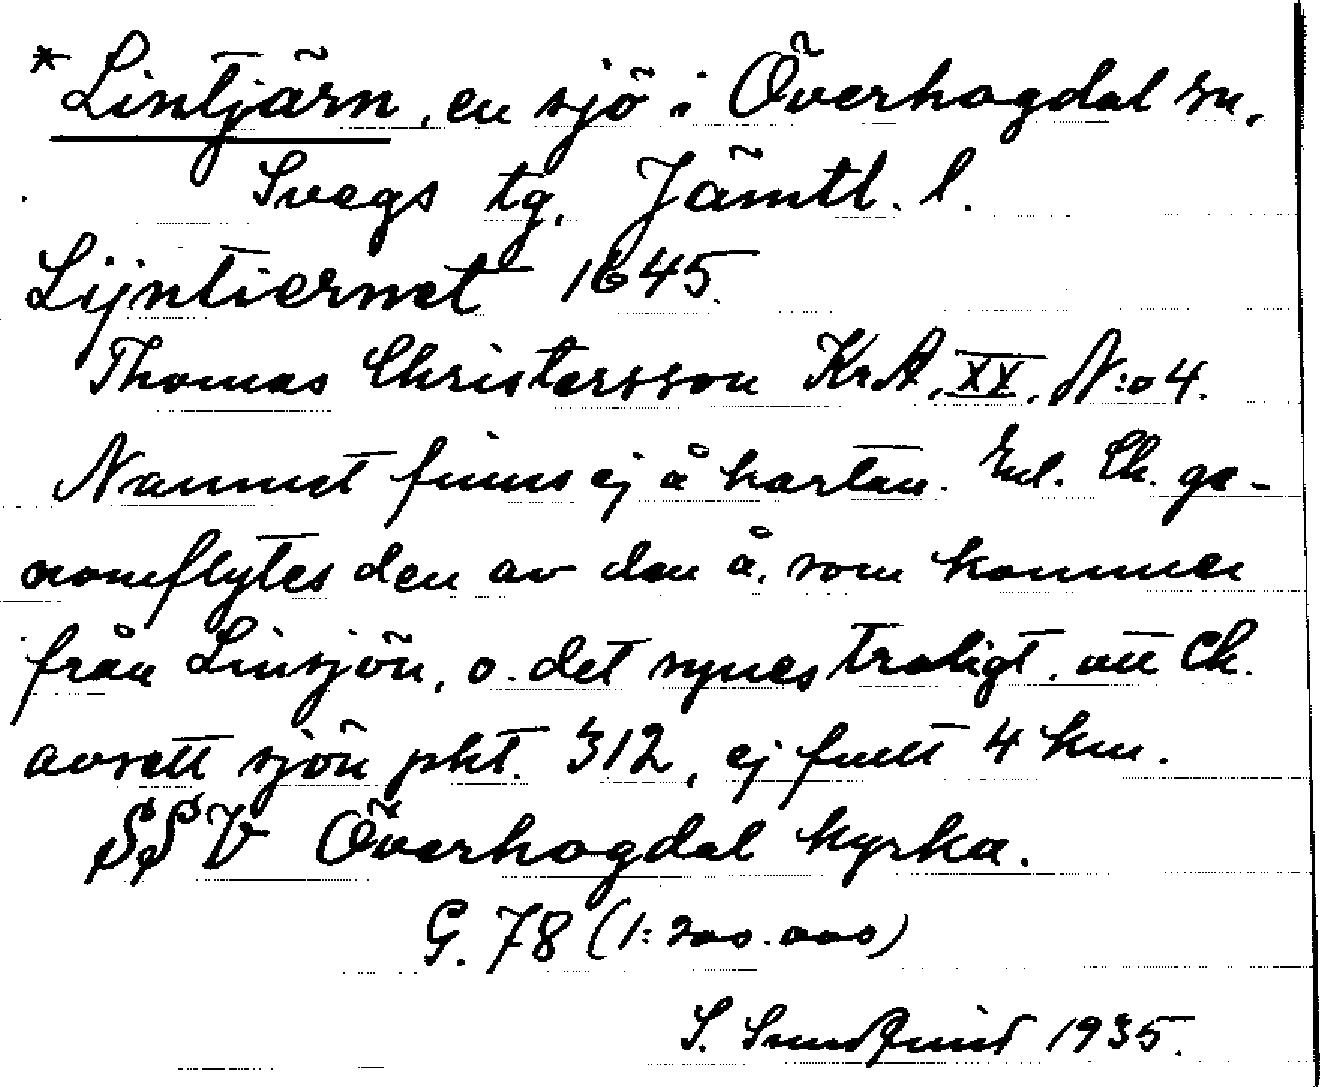 *Lintjärn, en sjö i Överhogdal sn,
Svegs tg, Jämtl. l.
Lijntiernet 1645.
Thomas Christersson KrA, XX, N:o 4.
Namnet finns ej å kartan. Enl. Ch. ge-
nomflytes den av den å, som kommer
från Linsjön, o. det synes troligt, att Ch.
avsett sjön pkt. 312, ej fullt 4 km.
SSV Överhogdal kyrka.
G. 78 (1:200.000)
S. Sundquist 1935.